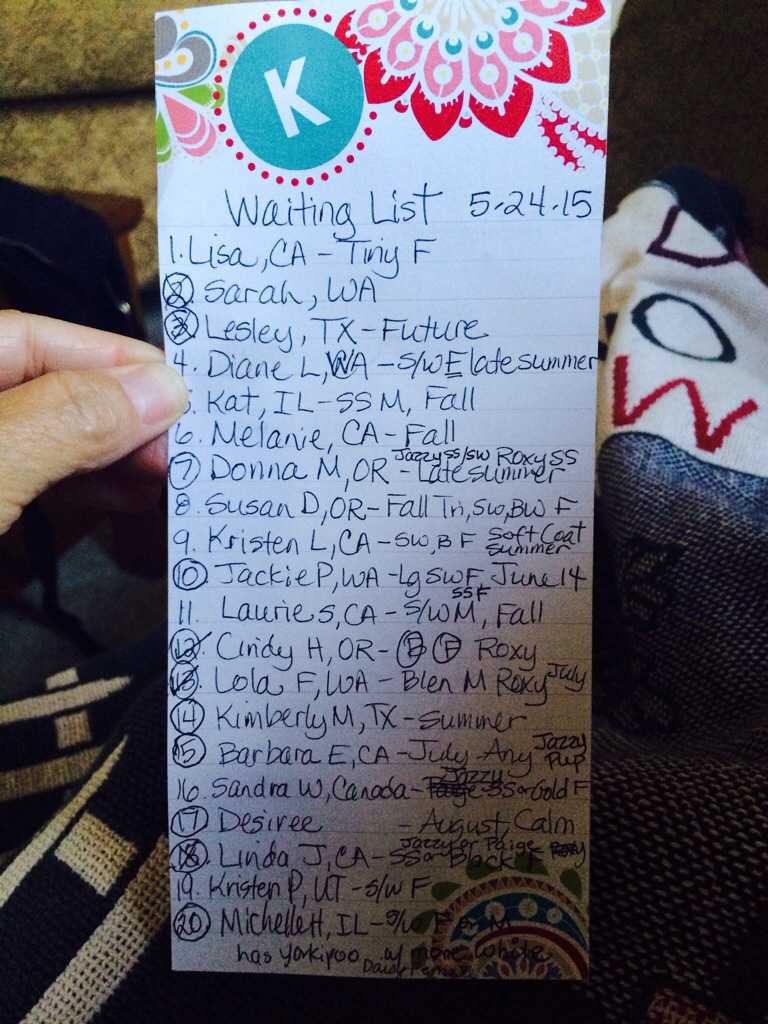 K
Waiting List 5-24-15
1. Lisa, CA - Tiny F
2. Sarah, WA
3. Lesley, TX - Future
4. Diane L, WA - S/W F late summer
5. Kat, IL - SS M, Fall
6. Melanie, CA - Fall
Jazzy SS/SW Roxy SS
7. Donna M, OR - Late summer
8. Susan D, OR - Fall Tri, SW, BW F
9. Kristen L, CA - SW, B F Soft Coat summer
10. Jackie P, WA - Lg SW F, June 14
SS F
11. Laurie S, CA - S/W M, Fall
12. Cindy H, OR - B F Roxy
13. Lola F, WA - Blen M Roxy July
14. Kimberly M, TX - Summer
15. Barbara E, CA - July - Any Jazzy Pup
Jazzy
16. Sandra W, Canada - Paige SS or Gold F
17. Desiree - August, Calm
Jazzy or Paige Roxy
18. Linda J, CA - SS or Black F
19. Kristen P, UT - S/W F
20. Michelle H, IL - S/W F or M
has Yorkipoo w/ more white
Daisy
D O W